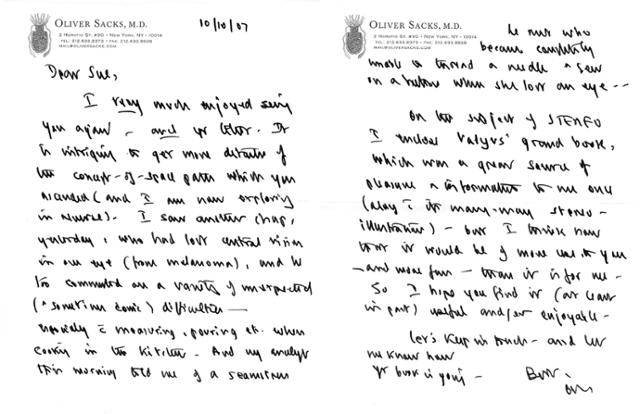 OLIVER SACKS, M.D.
2 HORATIO ST. #3G • NEW YORK, NY • 10014
TEL: 212.633.8373 • FAX: 212.633.8928
MAIL@OLIVERSACKS.COM
10/10/07
Dear Sue,
I very much enjoyed seeing
you again – and yr letter. It
is intriguing to get more details of
the concept-of-space path which you
ascended (and I am now exploring
in reverse). I saw another chap,
yesterday, who had lost central vision
in one eye (from melanoma), and he
too commented on a variety of unexpected
(& sometimes comic) difficulties —
especially measuring, pouring etc. when
cooking in the kitchen. And my analyst
this morning told me of a seamstress
OLIVER SACKS, M.D.
2 HORATIO ST. #3G • NEW YORK, NY • 10014
TEL: 212.633.8373 • FAX: 212.633.8928
MAIL@OLIVERSACKS.COM
he met who
became completely
unable to thread a needle & sew
on a button when she lost an eye --
On the subject of STEREO
I enclose Valyus' grand book,
which was a great source of
pleasure & information to me once
(along its many-many stereo-
illustrations) – but I think now
that it would be of more use to you
– and more fun – than it is for me –
So I hope you find it (at least
in part) useful and/or enjoyable –
Let's keep in touch – and let
me know how
yr book is going –
Best,